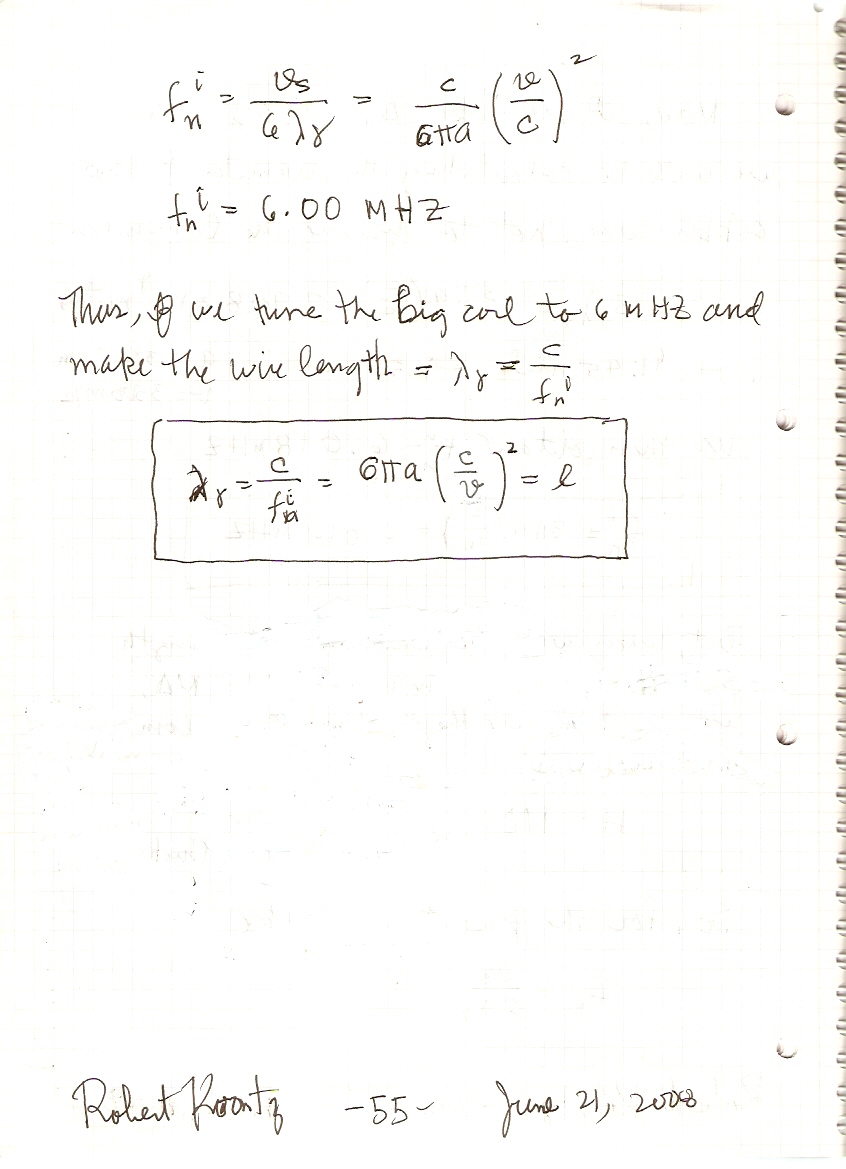 fₙⁱ = vₛ / 6λᵧ = c / 6πa (v/c)²
fₙⁱ = 6.00 MHZ
Thus, if we tune the big coil to 6 MHZ and
make the wire length = λᵧ = c / fₙⁱ
λᵧ = c / fₙⁱ = 6πa (c/v)² = l
Robert Koontz -55- June 21, 2008